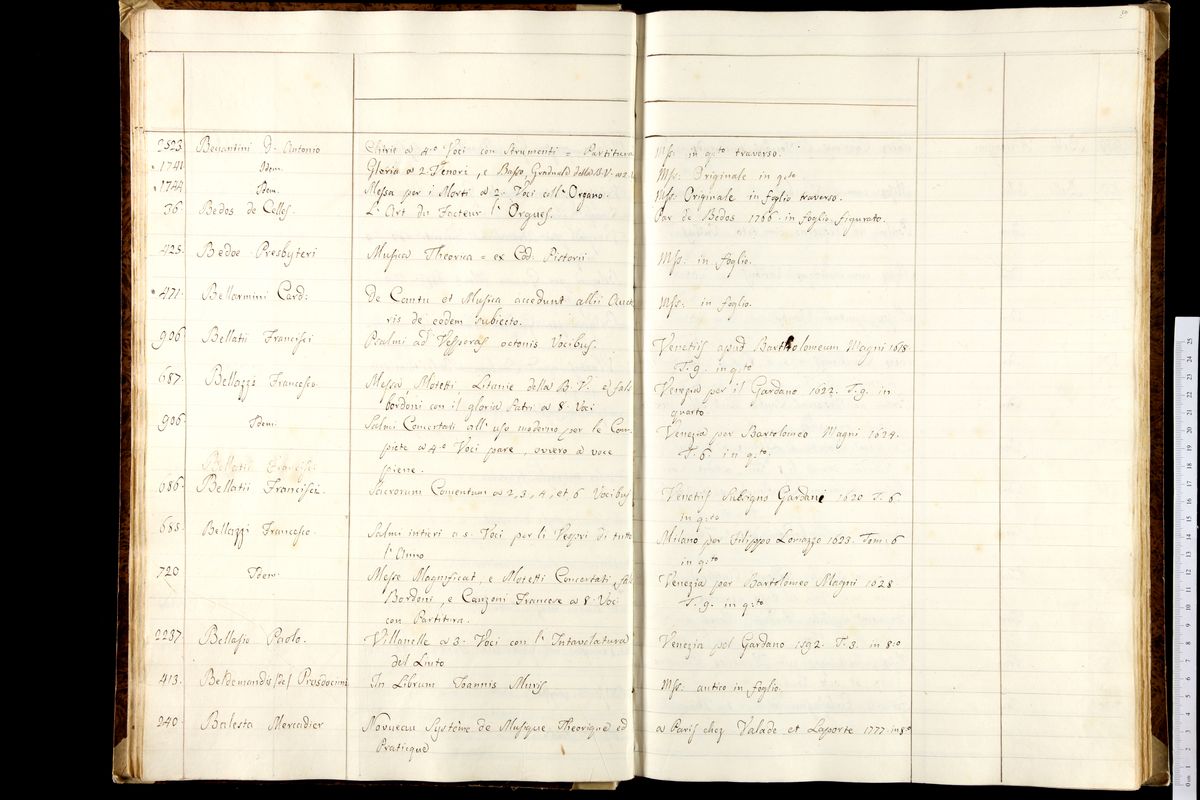 2523 Benvantini D. Antonio Chirie a 4.º Voci con Strumenti = Partitura Mss. in q.to traverso.
1741 Idem. Gloria a 2 Tenori, e Basso, Graduale della B. V. a 2. V Mss: Originale in q.to
1744 Idem. Messa per i Morti a 2. Voci coll' Organo. Mss: Originale in foglio traverso.
36 Bedos de Celles. L' Art du Facteur l' Orgues. Par de Bedos 1766. in foglio figurato.
425. Bedoe Presbyteri Musica Theorica = ex Cod: Pistorii Mss: in foglio.
471. Bellarmini Card: De Cantu et Musica accedunt allii Aucto Mss: in foglio.
ris de eodem subiecto.
906 Bellatii Francisci Psalmi ad Vesperas octonis Vocibus. Venetiis apud Bartholomeum Magni 1618.
T. 9. in q.to
687. Bellazzi Francesco Messa Motetti Litanie della B. V. e fals Venezia per il Gardano 1622. T. 9. in
bordoni con il gloria Patri a 8. Voci quarto
906 Idem. Salmi Concertati all' uso moderno, per le Com Venezia per Bartolomeo Magni 1624.
piete a 4.º Voci pare, overo a voce T. 6. in q.to.
Bellatii Francisci piene.
686. Bellatii Francisci. Sacrorum Concentum a 2, 3, 4, et 6 Vocibus Venetiis Gardani 1620 T. 6
in q.to
685. Bellazzi Francesco. Salmi intieri a 5. Voci per li Vespri di tutto Milano per Filippo Lomazzo 1623. Tom: 6
l' Anno in q.to
720 Idem Messe Magnificat, e Motetti Concertati, fals Venezia per Bartolomeo Magni 1628.
Bordoni, e Canzoni Francese a 8. Voci T. 9. in q.to
con Partitura.
2237 Bellasio Paolo. Villanelle a 3. Voci con l' Intavolatura Venezia pel Gardano 1592. T. 3. in 8.º
del Liuto
413. Beldemandis [de] Prosdocimi In Librum Joannis Muris Mss: antico in foglio.
240. Balesta Mercadier Nouveau Système de Musique Theorique ed a Paris chez Valade et Laporte 1777. in 8º
Praticque